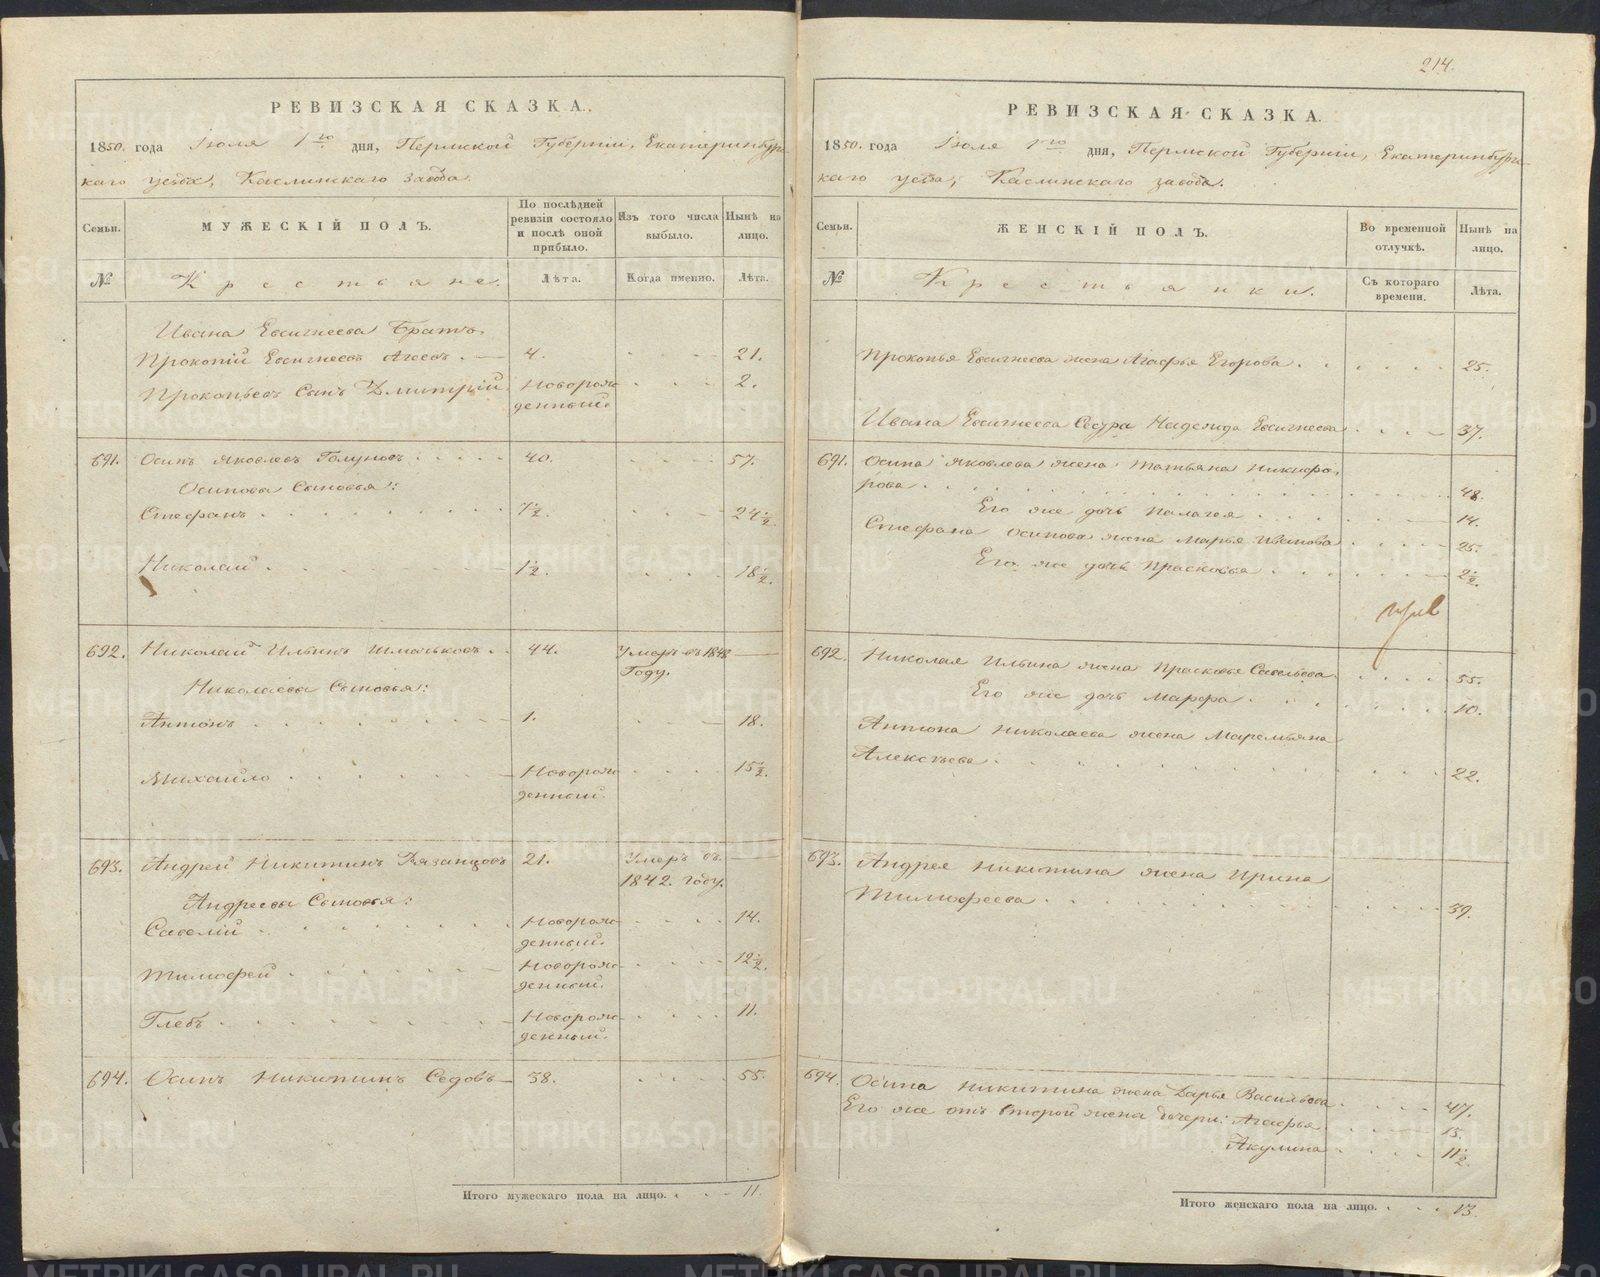 РЕВИЗСКАЯ СКАЗКА.
1850. года Іюля 1го дня, Пермской Губерніи, Екатеринбург-
скаго уѣзда, Каслинскаго завода.
Семьи.
МУЖЕСКІЙ ПОЛЪ.
По послѣдней
ревизіи состояло
и послѣ оной
прибыло.
Изъ того числа
выбыло.
Нынѣ на
лицо.
№
Крестьяне.
Лѣта.
Когда именно.
Лѣта.
Ивана Евсигнеева Братъ
Прокопій Евсигнеевъ 4. 21.
Прокопьевъ Сынъ Дмитрій Новорож- 2.
денный.
691. Осипъ Яковлевъ Голуновъ 40. 57.
Осиповы Сыновья:
Стефанъ 7½. 24½.
Николай 1½. 18½.
692. Николай Ильинъ 44. Умеръ въ 1848
Году.
Николаевы Сыновья:
Антонъ 1. 18.
Михайло Новорож- 15½.
денный.
693. Андрей Никитинъ Рязанцовъ 21. Умеръ въ
1842. Году.
Андреевы Сыновья:
Савелій Новорож- 14.
денный.
Тимофей Новорож- 12½.
денный.
Глебъ Новорож- 11.
денный.
694. Осипъ Никитинъ Седовъ 38. 55.
Итого мужескаго пола на лицо. 11.
214.
РЕВИЗСКАЯ СКАЗКА.
1850. года Іюля 1го дня, Пермской Губерніи, Екатеринбург-
скаго уѣзда, Каслинскаго завода.
Семьи.
ЖЕНСКІЙ ПОЛЪ.
Во временной
отлучкѣ.
Нынѣ на
лицо.
№
Крестьянки.
Съ котораго
времени.
Лѣта.
Прокопья Евсигнеева жена Агафья Егорова 25.
Ивана Евсигнеева Сестра Надежда Евсигнеева 37.
691. Осипа Яковлева жена Татьяна Никифо-
рова 48.
Его же дочь Палагея 14.
Стефана Осипова жена Марья Иванова 25.
Его же дочь Прасковья 2½.
692. Николая Ильина жена Прасковья Савельева 55.
Его же дочь Марфа 10.
Антона Николаева жена Маремьяна
Алексѣева 22.
693. Андрея Никитина жена Ирина
Тимофеева 39.
694. Осипа Никитина жена Дарья Васильева 47.
Его же отъ второй жены дочери: Агафья 15.
Акулина 11½.
Итого женскаго пола на лицо. 13.
METRIKI.GASO-URAL.RU